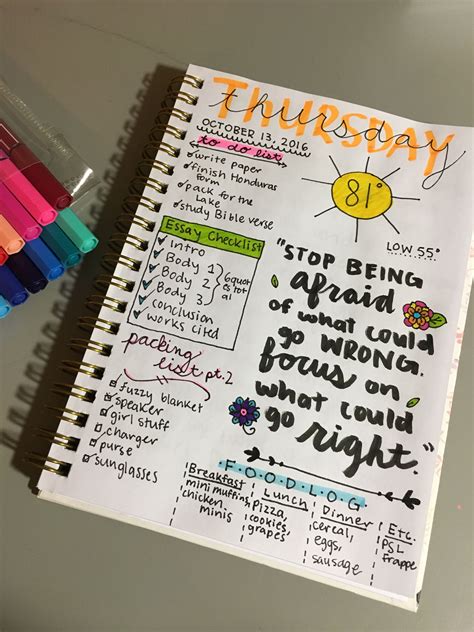 THURSDAY
thursday
OCTOBER 13, 2016
to do list
write paper
finish Honduras
form
pack for the
Lake
study Bible verse
81°
LOW 55°
Essay Checklist
Intro
Body 1
Body 2
Body 3
conclusion
works cited
6 quotes
total
"STOP BEING
afraid
of what could
go WRONG.
focus on
what could
go right."
packing
list pt. 2
fuzzy blanket
speaker
girl stuff
charger
purse
sunglasses
FOOD LOG
Breakfast
mini muffins,
chicken
minis
Lunch
pizza,
cookies,
grapes
Dinner
cereal,
eggs,
sausage
Etc.
PSL
frappe